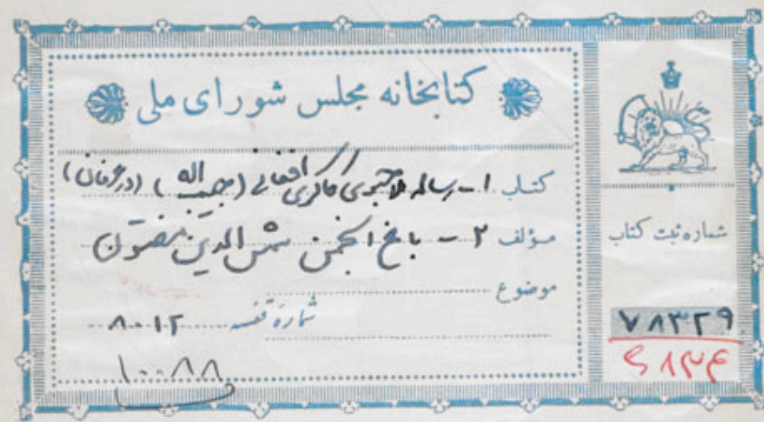 کتابخانه مجلس شورای ملی
کتاب ۱- رساله کاکری افغانی (حبیب اله) (در عرفان)
مؤلف ۲- باغ انجمن شمس الدین مفتون
موضوع
شمارهٔ قفسه ۸۰۱۲
۱۰۰۸۸
شماره ثبت کتاب
۷۸۳۲۹